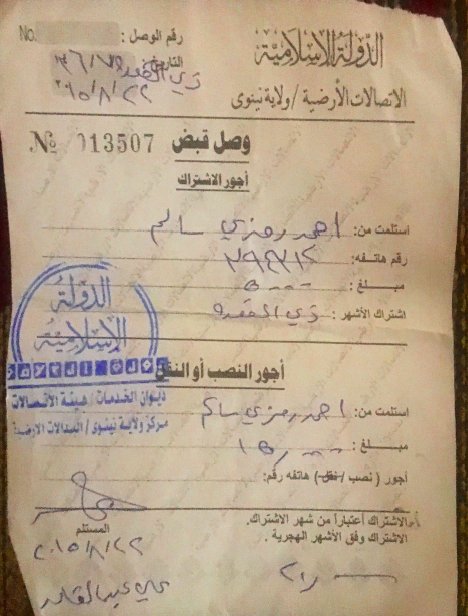 الدولة الإسلامية
رقم الوصل :
No.
الاتصالات الأرضية / ولاية نينوى
التاريخ
ذي القعدة
٢٠١٥/٨/٢٢
وصل قبض
№ 013507
أجور الاشتراك
استلمت من: احمد رمزي سالم
رقم هاتفه:
مبلغ :
اشتراك الأشهر: ذي القعدة
الدولة
الإسلامية
ديوان الخدمات / هيئة الاتصالات
مركز ولاية نينوى / البدالات الارضية
أجور النصب أو النقل
استلمت من: احمد رمزي سالم
مبلغ :
أجور ( نصب / نقل ) هاتفه رقم:
الاشتراك أعتباراً من شهر الاشتراك.
الاشتراك وفق الأشهر الهجرية .
المستلم
٢٠١٥/٨/٢٢
علي عبدالقادر